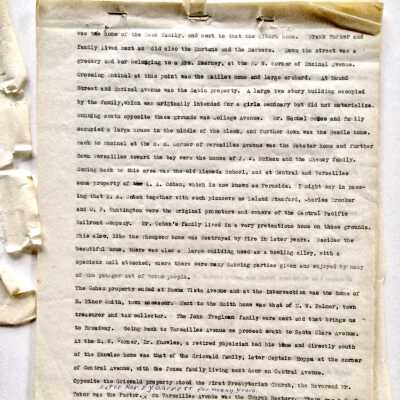 was the home of the Cook family, and next to that the Alters home. Frank Barker and
family lived next as did also the Hortons and the Barbers. Down the street was a
grocery and bar belonging to a Mrs. Kearney, at the S. W. corner of Encinal Avenue.
Crossing Encinal at this point was the Maillot home and large orchard. At Mound
Street and Encinal Avenue was the Sabin property. A large two story building occupied
by the family, which was originally intended for a girls seminary but did not materialize.
Running south opposite these grounds was College Avenue. Mr. and family
occupied a large house in the middle of the block, and further down was the Beadle home.
Back to Encinal at the S. E. corner of Versailles Avenue was the Webster home and further
down Versailles toward the bay were the homes of J. W. and the Cheney family.
Coming back to this area was the old Alameda School, and at Central and Versailles
some property of the A. A. Cohen, which is now known as Fernside. I might say in pass-
ing that A. A. Cohen together with such pioneers as Leland Stanford, Charles Crocker
and C. P. Huntington were the original promoters and owners of the Central Pacific
Railroad Company. Mr. Cohen's family lived in a very pretentious home on these grounds.
This also, like the Thompson home was destroyed by fire in later years. Besides the
beautiful home, there was also a large building used as a bowling alley, with a
spacious hall attached, where there were many dancing parties given and enjoyed by many
of the younger set of young people.
The Cohen property ended at Buena Vista Avenue and at the intersection was the home of
E. Minor Smith, town assessor. Next to the Smith home was that of E. W. Palmer, town
treasurer and tax collector. The John Tregloan family were next and that brings us
to Broadway. Going back to Versailles Avenue we proceed south to Santa Clara Avenue.
At the S. W. corner, Dr. Knowles, a retired physician had his home and directly south
of the Knowles home was that of the Griswald family, later Captain Hoppe at the corner
of Central Avenue, with the Jones family living next door on Central Avenue.
Opposite the Griswald property stood the first Presbyterian Church, the Reverend Mr.
for many years.
was the Pastor. On Versailles Avenue was the Church Rectory.